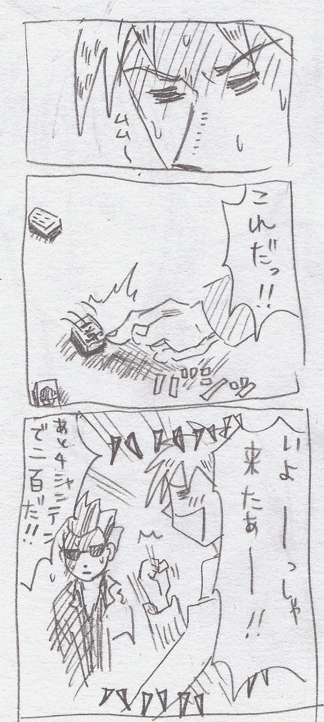 ムム〜
これだっ!!
バシッ
いよーーっしゃ
来たぁーー!!
あと4シャンテン
で二百だ!!